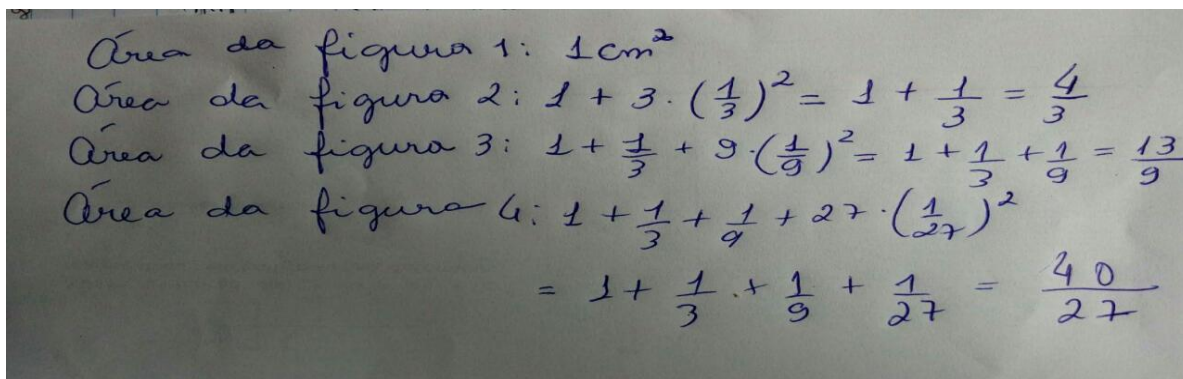 Área da figura 1: 1cm²
Área da figura 2: 1 + 3 · (1/3)² = 1 + 1/3 = 4/3
Área da figura 3: 1 + 1/3 + 9 · (1/9)² = 1 + 1/3 + 1/9 = 13/9
Área da figura 4: 1 + 1/3 + 1/9 + 27 · (1/27)²
= 1 + 1/3 + 1/9 + 1/27 = 40/27